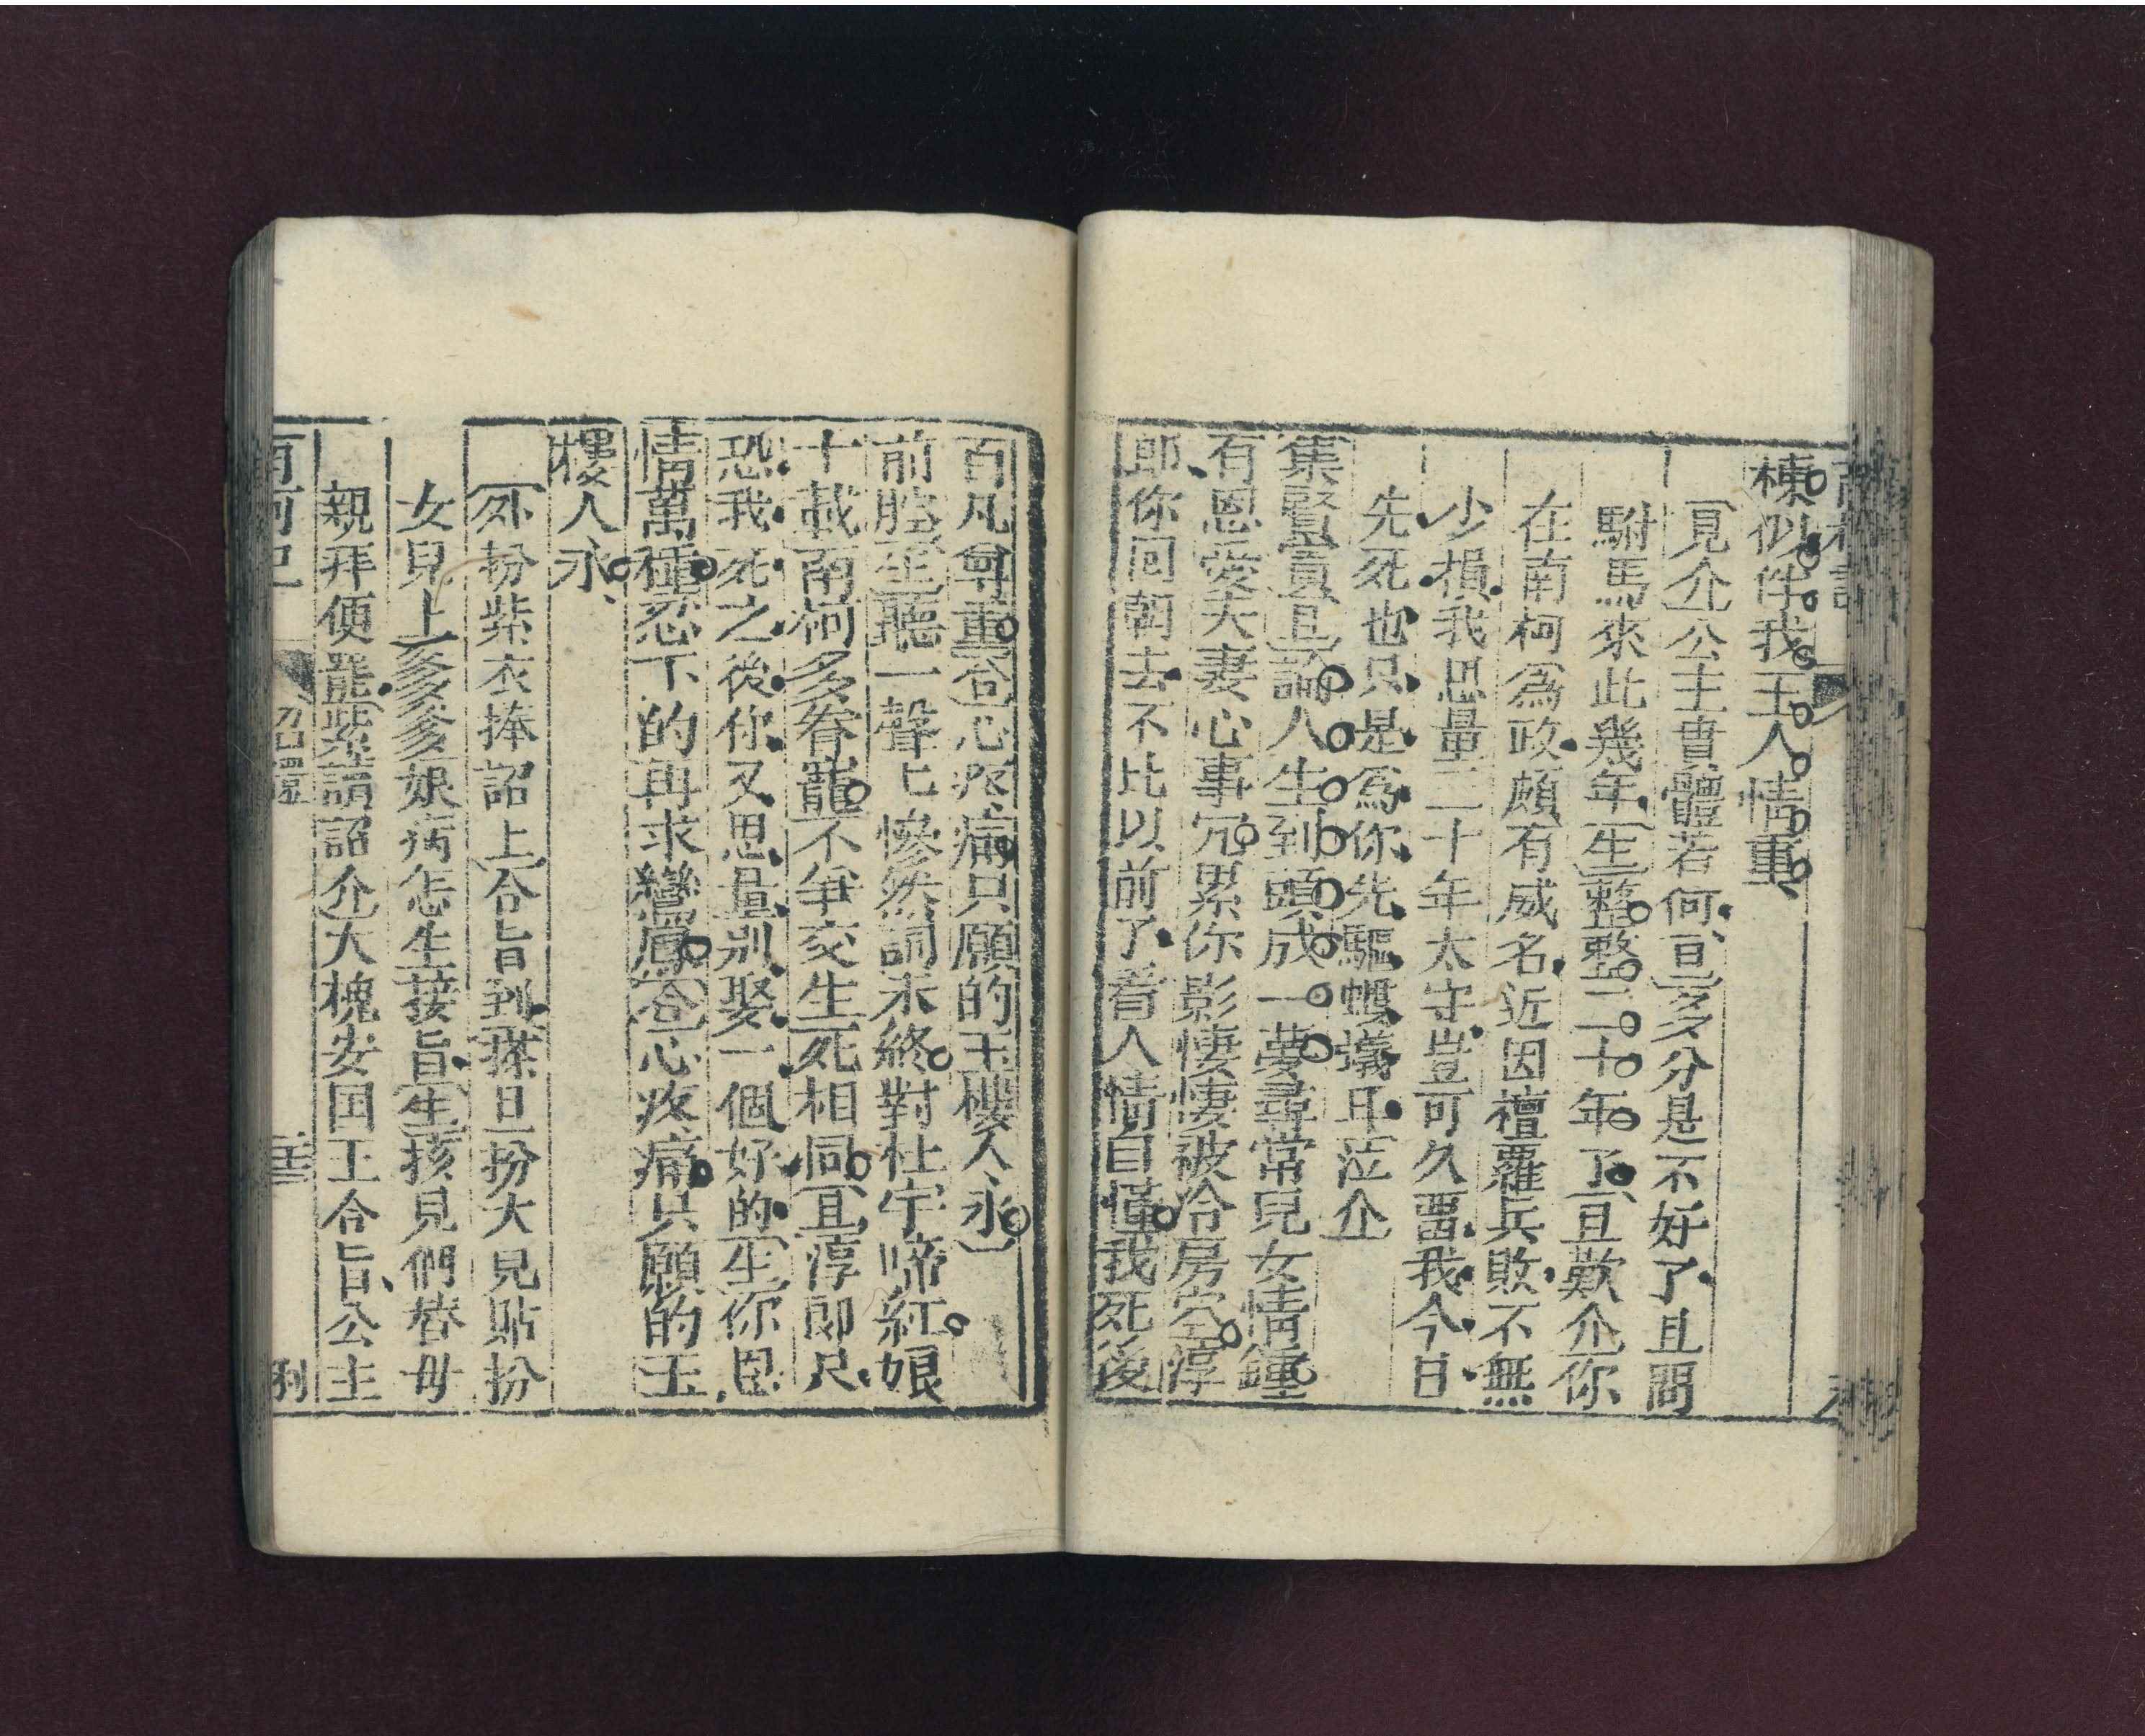 棟似伴我主人情重
見介公主貴體若何旦多分是不好了且問
駙馬來此幾年生整整二十年了旦歎介你
在南柯為政頗有威名近因檀羅兵敗不無
少損我思量二十年太守豈可久畱我今日
先死也只是為你先驅螻蟻耳泣介
集賢賓旦論人生到頭成一夢尋常兒女情鍾
有恩愛夫妻心事冗累你影悽悽被冷房空淳
郎你回朝去不比以前了看人情自懂我死後
百凡尊重合心疼痛只願的玉樓人永
前腔生聽一聲匕慘然詞未終對杜宇啼紅娘
十載南柯多眷寵不爭交生死相同旦淳郎只
恐我死之後你又思量別娶一個好的生你恩
情萬種忍下的再求鸞鳳合心疼痛只願的玉
樓人永
外扮紫衣捧詔上令旨到搽旦扮大兒貼扮
女兒上爹爹娘病怎生接旨生孩兒們替母
親拜便罷紫請詔介大槐安国王令旨公主
南柯記 召還